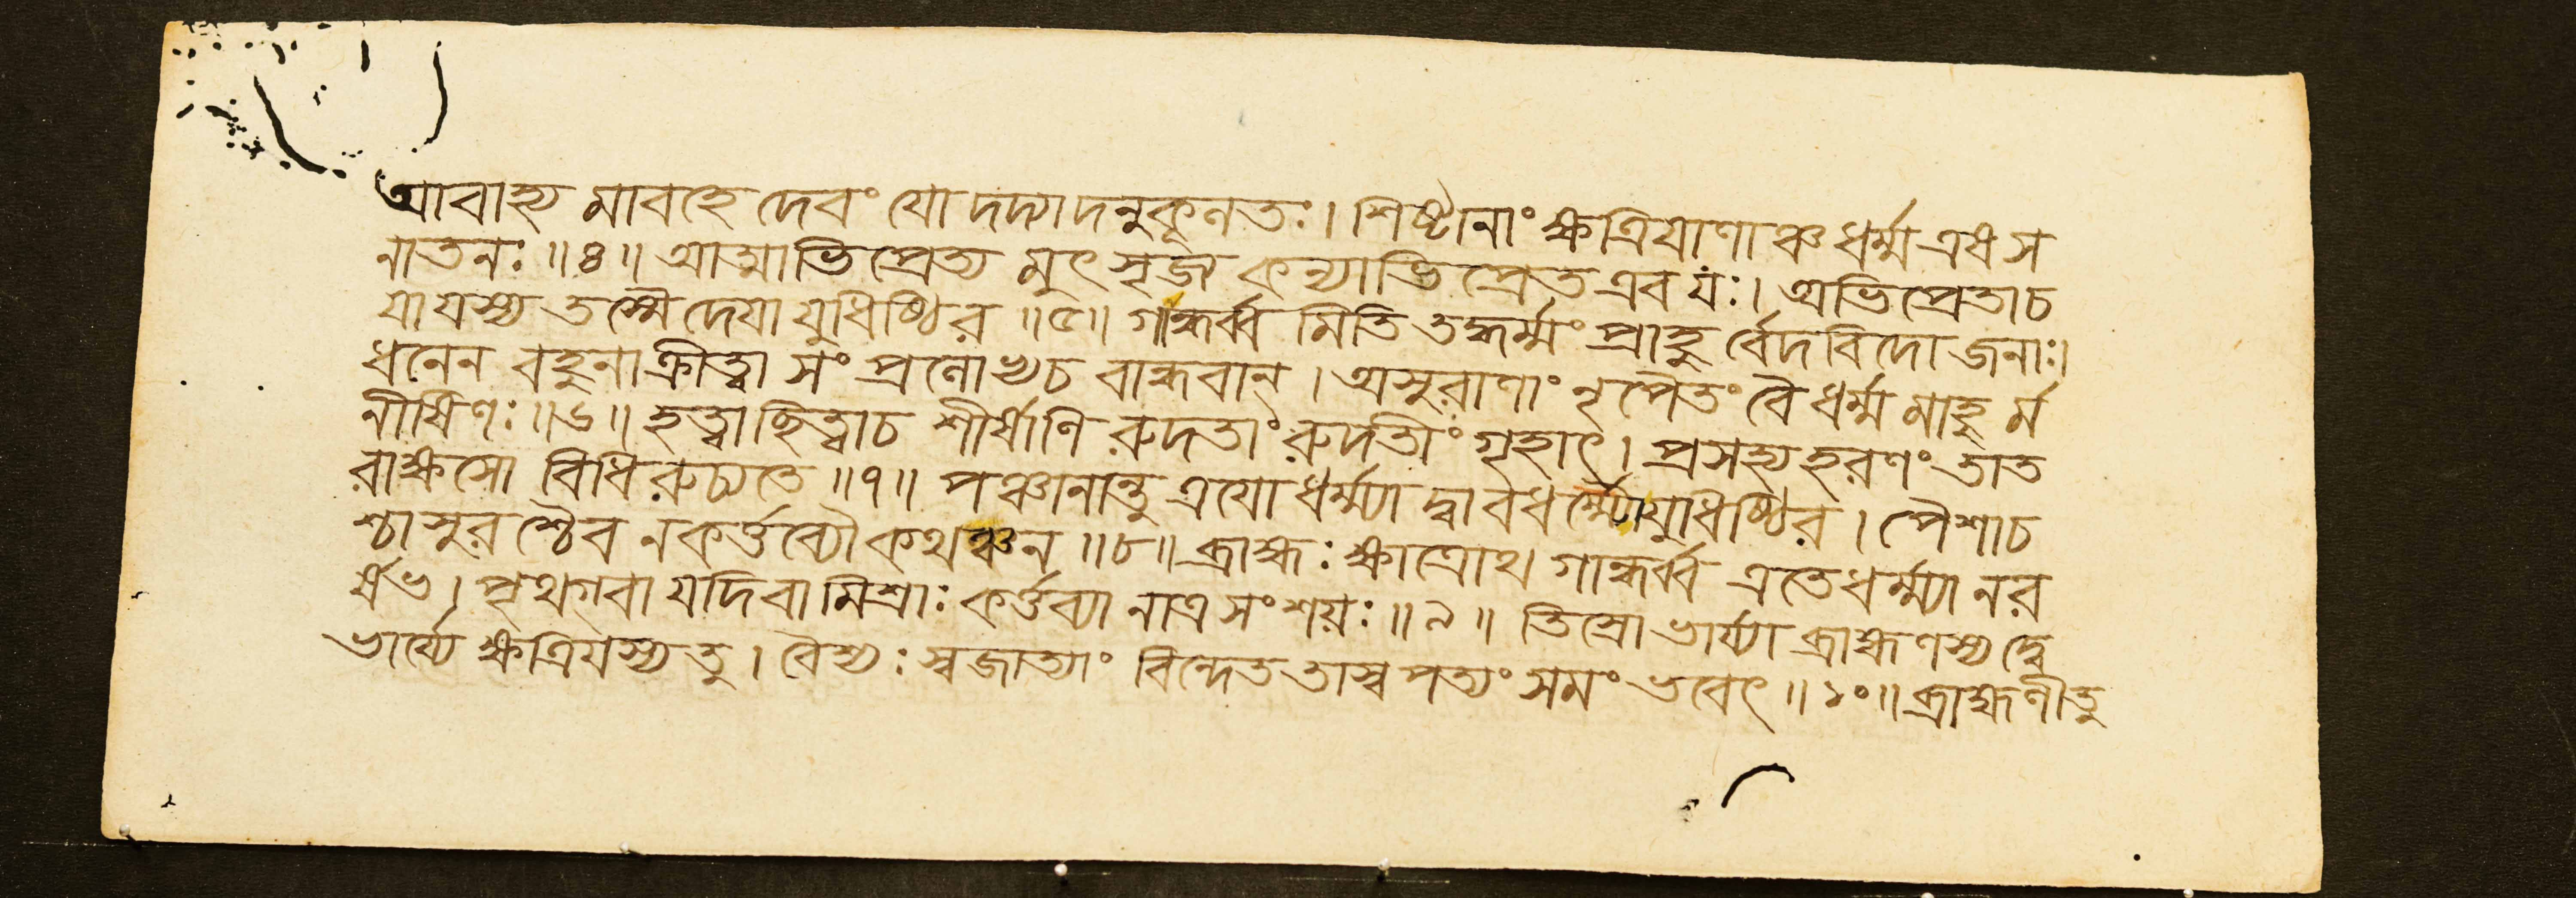 আবাহ্য মাবহে দেবং যো দদ্যাদনুকূনতঃ। শিষ্টানাং ক্ষত্রিযাণাঞ্চ ধর্ম্ম এষ স
নাতনঃ ॥৪॥ আত্মাভিপ্রেত্য মুৎসৃজ্য কন্যাভিপ্রেত এব যঃ। অভিপ্রেতাচ
যা যস্য তস্মৈ দেযা যুধিষ্ঠির ॥৫॥ গান্ধর্ব্ব মিতি তদ্ধর্ম্মং প্রাহু র্বেদবিদো জনাঃ।
ধনেন বহুনাক্রীত্বা সং প্রনোভ্যচ বান্ধবান্। অসুরাণাং নৃপৈতং বৈ ধর্ম্ম মাহু র্ম
নীষিণঃ ॥৬॥ হত্বাছিত্বাচ শীর্ষাণি রুদতাং রুদতীং গৃহাৎ। প্রসহ্য হরণং তাত
রাক্ষসো বিধি রুচ্যতে ॥৭॥ পঞ্চানান্তু ত্রযো ধর্ম্ম্যা দ্বাবধর্ম্ম্যো যুধিষ্ঠির। পৈশাচ
শ্চাসুর শ্চৈব নকর্ত্তব্যৌ কথঞ্চন ॥৮॥ ব্রাহ্মঃ ক্ষাত্রোথ গান্ধর্ব্ব এতে ধর্ম্ম্যা নর
র্ষভ। পৃথগ্বা যদি বা মিশ্রাঃ কর্ত্তব্যা নাত্র সংশয়ঃ ॥৯॥ তিস্রো ভার্য্যা ব্রাহ্মণস্য দ্বে
ভার্য্যে ক্ষত্রিযস্য তু। বৈশ্যঃ স্বজাত্যাং বিন্দেত তাস্ব পত্যং সমং ভবেৎ ॥১০॥ ব্রাহ্মণীতু